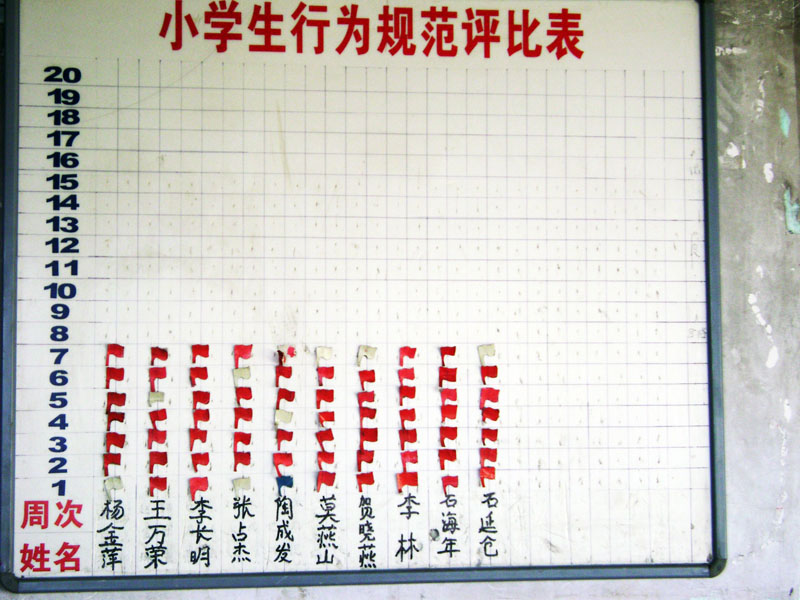 小学生行为规范评比表
20
19
18
17
16
15
14
13
12
11
10
9
8
7
6
5
4
3
2
1
周次
姓名
杨金萍
王万荣
李长明
张占杰
陶成发
莫燕山
贺晓燕
李林
石海年
石延仓